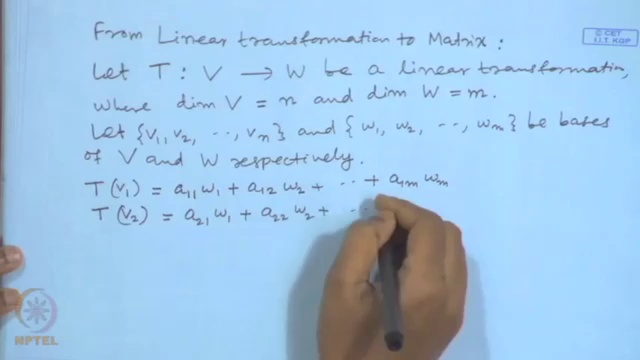 From Linear transformation to Matrix :
© CET
I.I.T. KGP
Let T : V → W be a linear transformation,
where dim V = n and dim W = m.
Let {v₁, v₂, ‥, vₙ} and {w₁, w₂, ‥, wₘ} be bases
of V and W respectively.
T(v₁) = a₁₁w₁ + a₁₂w₂ + ‥ + a₁ₘwₘ
T(v₂) = a₂₁w₁ + a₂₂w₂ + ‥
NPTEL